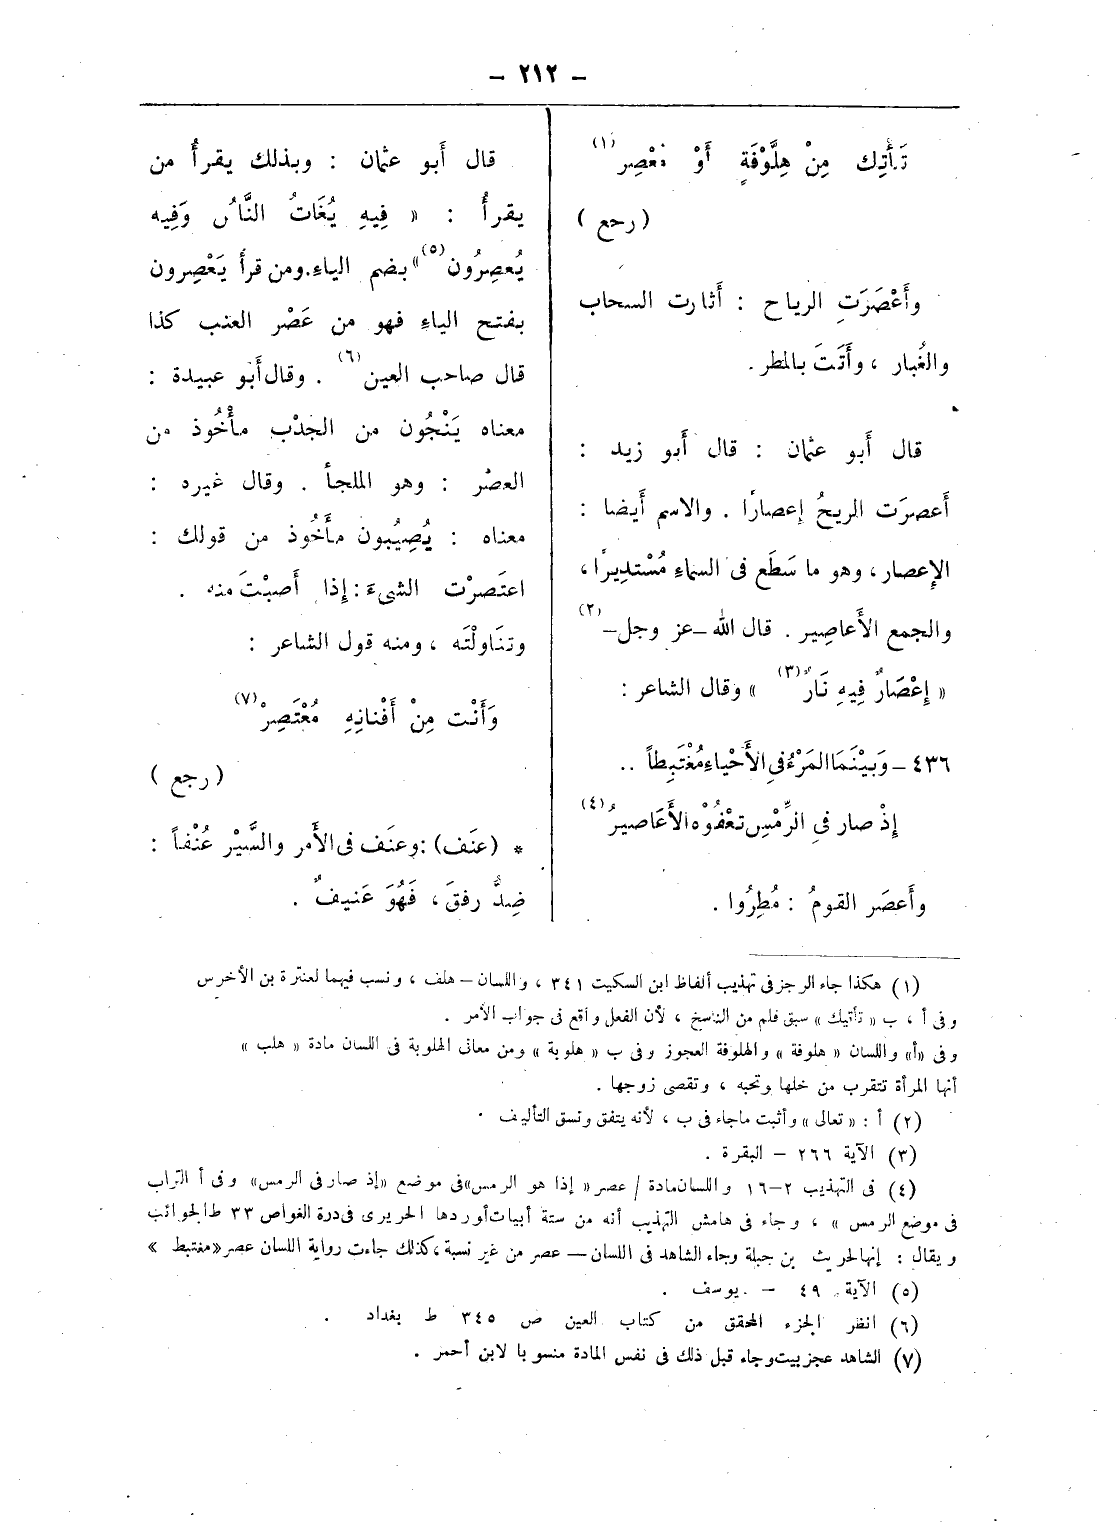 - ٢١٢ -
تَأْتِك مِنْ هِلَّوْفَةٍ أَوْ مُعْصِر (١)
( رجع )
وأَعْصَرَتِ الرياح : أَثارت السحاب
والغُبار ، وأَتَتَ بالمطر .
قال أَبو عثمان : قال أَبو زيد :
أَعصرَت الريحُ إِعصارًا . والاسم أَيضا :
الإِعصار ، وهو ما سَطَع فى السماءِ مُسْتديرًا ،
والجمع الأَعاصِير . قال الله –عز وجل– (٢)
« إِعْصَارٌ فِيهِ نَارٌ (٣) » وقال الشاعر :
٤٣٦ – وَبَيْنَمَا المَرْءُ فى الأَحْياءِ مُغْتَبِطاً ..
إِذْ صار فى الرِّمْسِ تعْفُوْه الأَعَاصيرُ (٤)
وأَعصَر القومُ : مُطِرُوا .
قال أَبو عثمان : وبذلك يقرأُ من
يقرأُ : « فِيهِ يُغَاثُ النَّاسُ وَفِيه
يُعصِرُون (٥) » بضم الياءِ . ومن قرأَ يَعْصِرون
بفتح الياءِ فهو من عَصْر العنب كذا
قال صاحب العين (٦) . وقال أَبو عبيدة :
معناه يَنْجُون من الجَدْب مأْخُوذ من
العصْر : وهو الملجأ . وقال غيره :
معناه : يُصِيُبون مأْخُوذ من قولك :
اعتَصرْت الشىءَ : إِذا أَصبْتَ منه .
وتنَاولْتَه ، ومنه قول الشاعر :
وَأَنْت مِنْ أَفْنانِهِ مُعْتَصِرْ (٧)
( رجع )
* (عنَف) : وعنَف فى الأَمر والسَّيْر عُنْفاً :
ضِدُّ رفقَ ، فَهُوَ عَنيفٌ .
(١) هكذا جاء الرجز فى تهذيب ألفاظ ابن السكيت ٣٤١ ، واللسان – هلف ، ونسب فيهما لعنترة بن الأخرس
وفى أ ، ب « تأتيك » سبق قلم من الناسخ ، لأن الفعل واقع فى جواب الأمر .
وفى «أ» واللسان « هلوفة » والهلوفة العجوز وفى ب « هلوبة » ومن معانى الهلوبة فى اللسان مادة « هلب »
أنها المرأة تتقرب من خلها وتحبه ، وتقصى زوجها .
(٢) أ : « تعالى » وأثبت ماجاء فى ب ، لأنه يتفق ونسق التأليف .
(٣) الآية ٢٦٦ – البقرة .
(٤) فى التهذيب ٢–١٦ واللسان مادة / عصر « إذا هو الرمس» فى موضع «إذ صار فى الرمس» وفى أ التراب
فى موضع الرمس » ، وجاء فى هامش التهذيب أنه من ستة أبيات أوردها الحريرى فى درة الغواص ٣٣ ط الجوائب
ويقال : إنها لحريث بن جبلة وجاء الشاهد فى اللسان – عصر من غير نسبة ، كذلك جاءت رواية اللسان عصر «مغتبط »
(٥) الآية ٤٩ – يوسف .
(٦) انظر الجزء المحقق من كتاب العين ص ٣٤٥ ط بغداد .
(٧) الشاهد عجز بيت وجاء قبل ذلك فى نفس المادة منسوبا لابن أحمر .